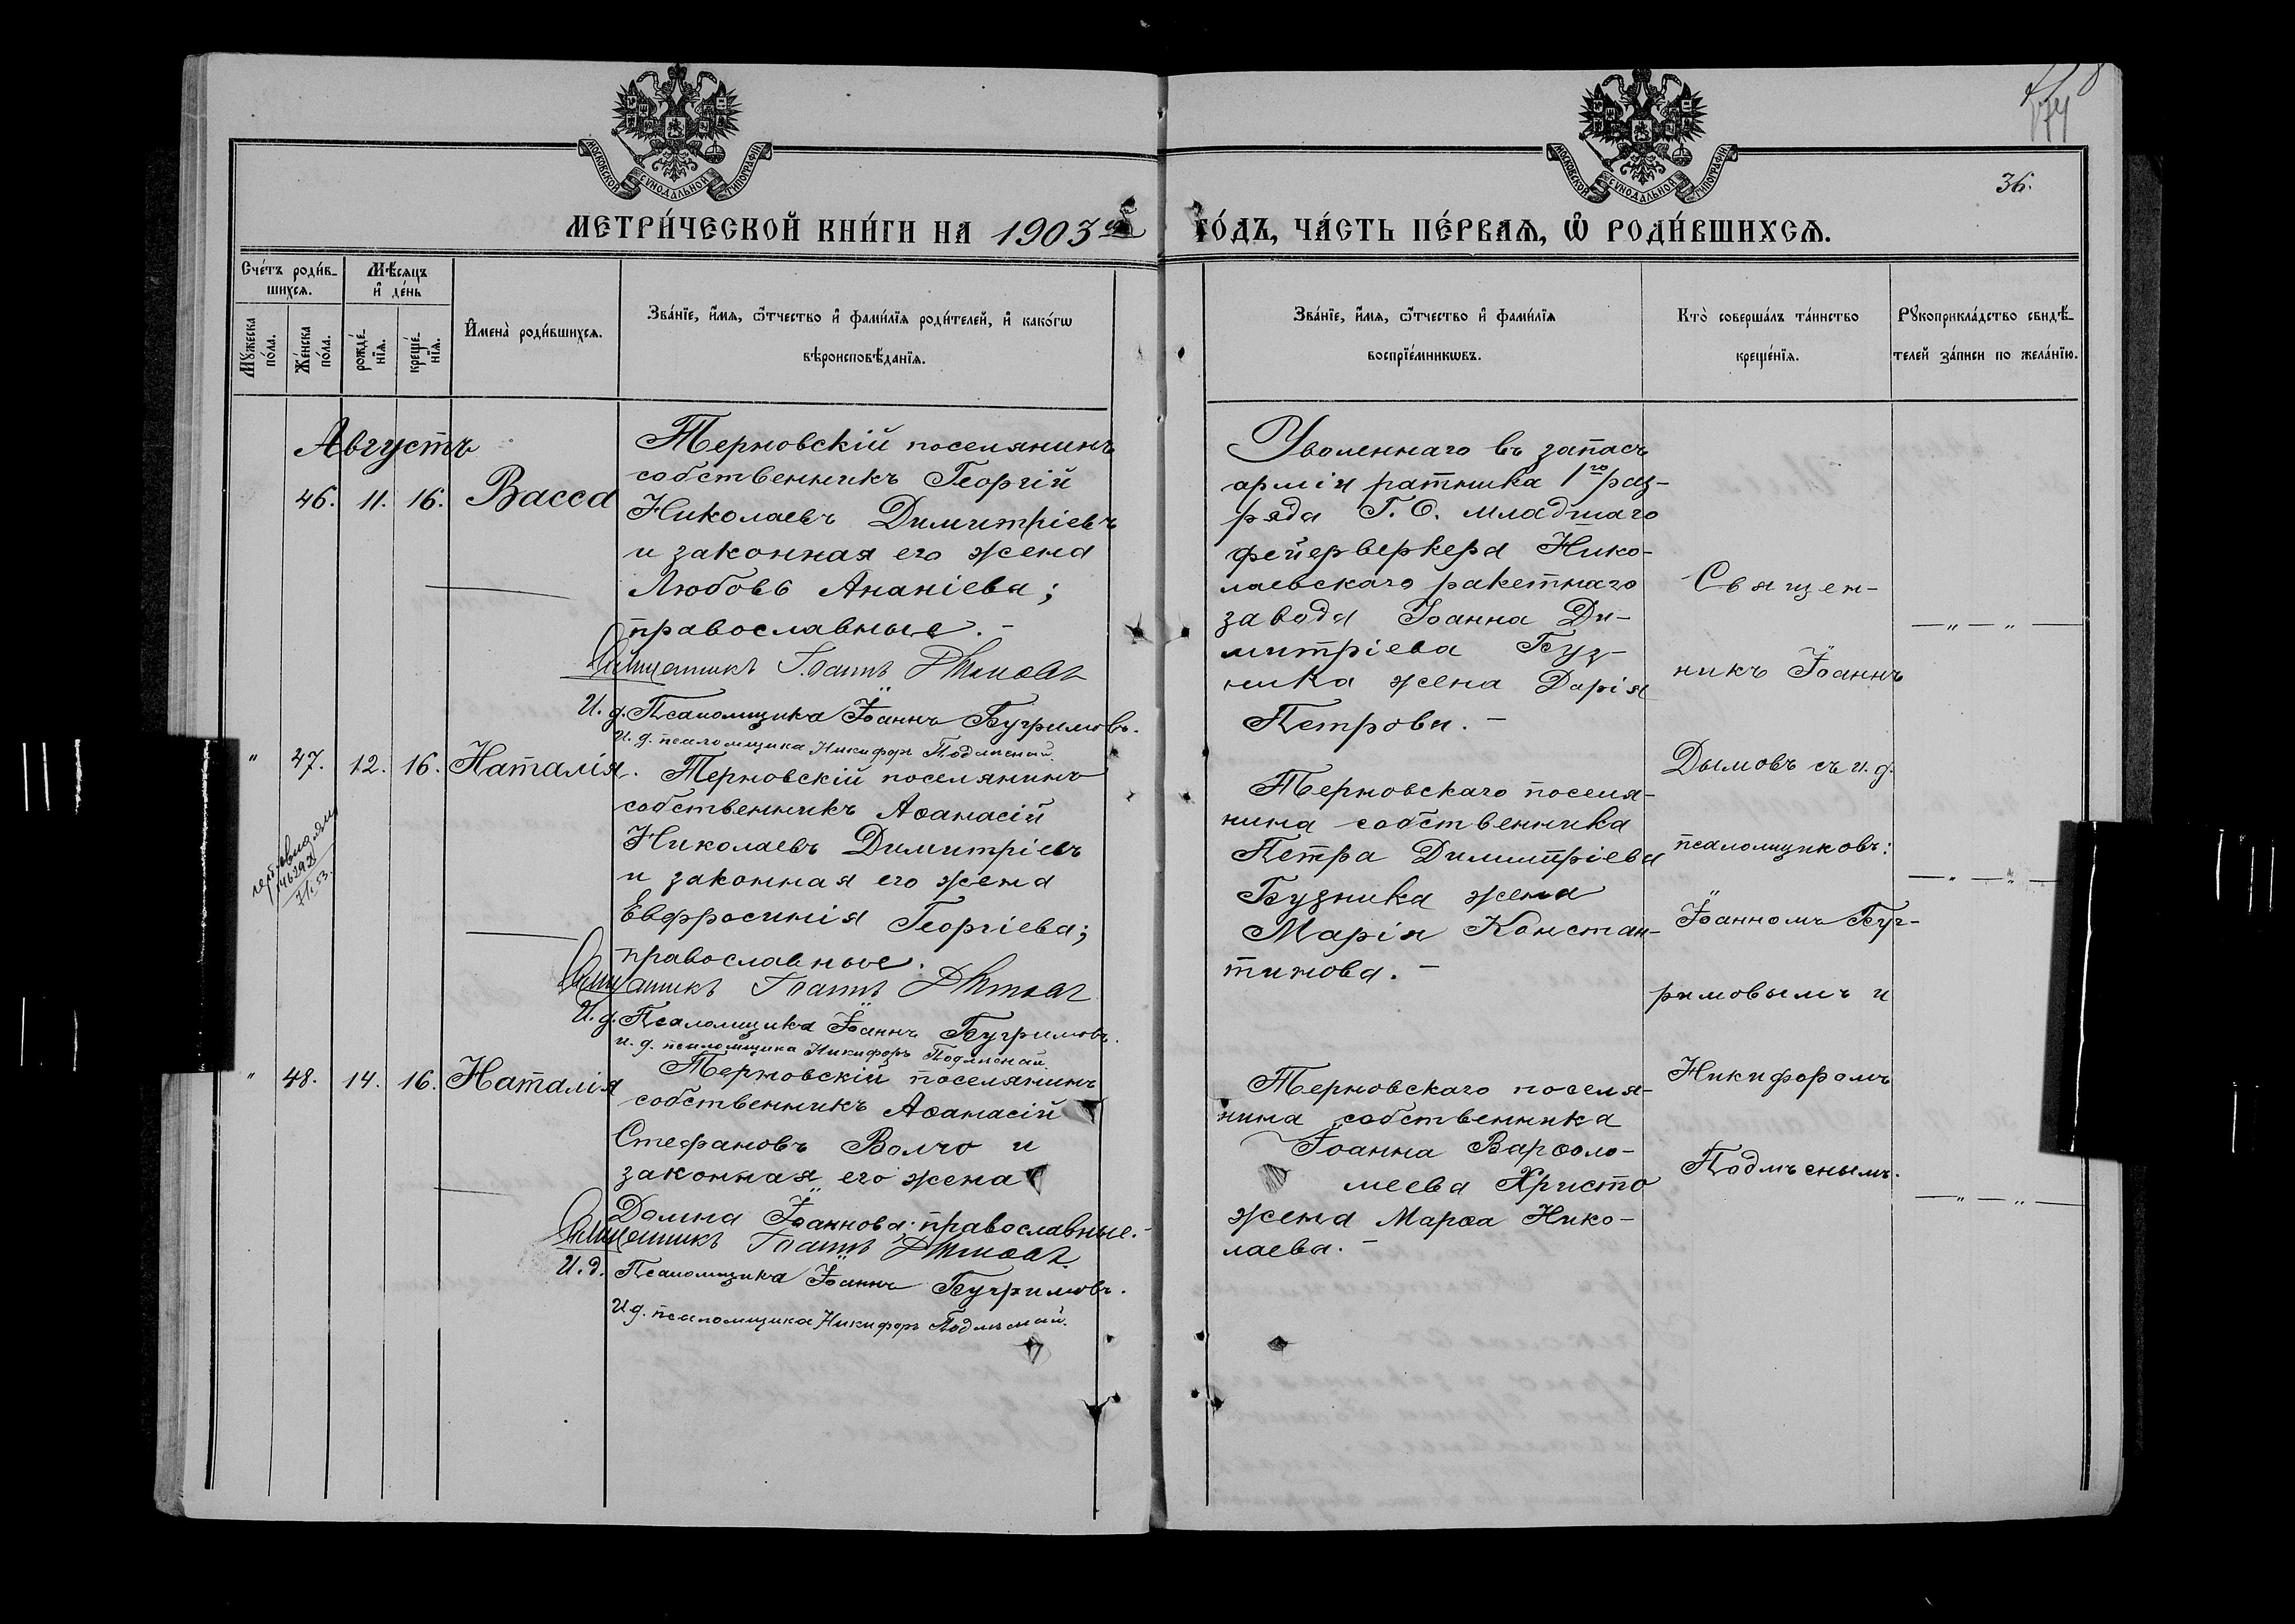 МОСКОВСКОЙ СѴНОДАЛЬНОЙ ТИПОГРАФІИ
МОСКОВСКОЙ СѴНОДАЛЬНОЙ ТИПОГРАФІИ
36.
МЕТРИ́ЧЕСКОЙ КНИ́ГИ НА 1903
ГО́ДЪ, ЧА́СТЬ ПЕ́РВАѦ, Ѡ҆ РОДИ́ВШИХСѦ.
Сче́тъ роди́в-
шихсѧ.
Мѣ́сѧцъ
и҆ де́нь
Мꙋ́жеска
по́ла.
Же́нска
по́ла.
рожде́-
нїѧ.
креще́-
нїѧ.
И҆мена̀ роди́вшихсѧ.
Зва́нїе, и҆́мѧ, ѻ҆́тчество и҆ фами́лїѧ роди́телей, и҆ како́гѡ
вѣроисповѣ́данїѧ.
Зва́нїе, и҆́мѧ, ѻ҆́тчество и҆ фами́лїѧ
воспрїе́мникѡвъ.
Кто̀ соверша́лъ та́инство
креще́нїѧ.
Рꙋкоприкла́дство свидѣ́-
телей за́писи по жела́нїю.
Августъ
46. 11. 16. Васса
Терновскій поселянинъ
собственникъ Георгій
Николаевъ Димитріевъ
и законная его жена
Любовь Ананіева;
православные. -
Священникъ Іоаннъ Дымовъ
И. д. Псаломщика Іоаннъ Бугримовъ.
И. д. псаломщика Никифоръ Подлѣсный.
Уволеннаго въ запасъ
арміи ратника 1го раз-
ряда Г. О. младшаго
фейерверкера Нико-
лаевскаго ракетнаго
завода Іоанна Ди-
митріева Буз-
ника жена Дарія
Петрова. -
" 47. 12. 16. Наталія.
Терновскій поселянинъ
собственникъ Аѳанасій
Николаевъ Димитріевъ
и законная его жена
Евфросинія Георгіева;
православные.
Священникъ Іоаннъ Дымовъ
И. д. Псаломщика Іоаннъ Бугримовъ.
И. д. псаломщика Никифоръ Подлѣсный.
Терновскаго поселя-
нина собственника
Петра Димитріева
Бузника жена
Марія Констан-
тинова. -
" 48. 14. 16. Наталія
Терновскій поселянинъ
собственникъ Аѳанасій
Стефановъ Волчо и
законная его жена
Домна Іоаннова; православные. -
Священникъ Іоаннъ Дымовъ
И. д. Псаломщика Іоаннъ Бугримовъ.
И. д. псаломщика Никифоръ Подлѣсный.
Терновскаго поселя-
нина собственника
Іоанна Варѳоло-
меева Христо
жена Марѳа Нико-
лаева. -
Священ-
никъ Іоаннъ
Дымовъ съ и. д.
псаломщиковъ:
Іоанномъ Буг-
римовымъ и
Никифоромъ
Подлѣснымъ.
— " — " —
— " — " —
— " — " —